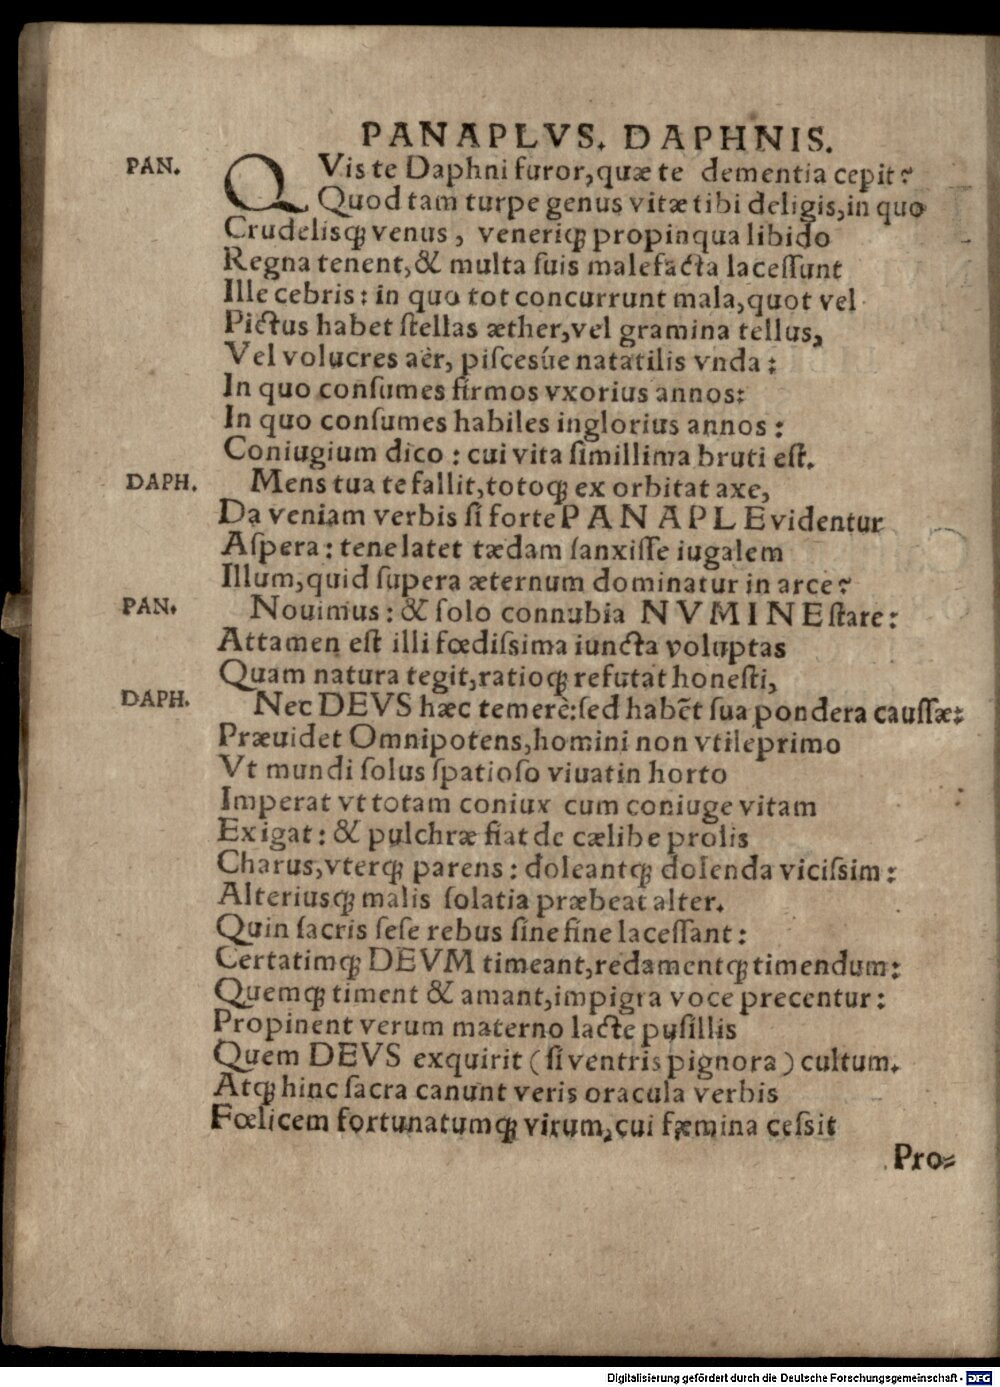 PANAPLVS. DAPHNIS.
PAN. QVis te Daphni furor, quæ te dementia cepit?
Quod tam turpe genus vitæ tibi deligis, in quo
Crudelisq́; venus, veneriq́; propinqua libido
Regna tenent, & multa ſuis malefacta laceſſunt
Ille cebris: in quo tot concurrunt mala, quot vel
Pictus habet ſtellas æther, vel gramina tellus,
Vel volucres aër, piſcesúe natatilis vnda:
In quo conſumes firmos vxorius annos:
In quo conſumes habiles inglorius annos:
Coniugium dico: cui vita ſimillima bruti eſt.
DAPH. Mens tua te fallit, totoq́; ex orbitat axe,
Da veniam verbis ſi forte PANAPLE videntur
Aſpera: tene latet tædam ſanxiſſe iugalem
Illum, quid ſupera æternum dominatur in arce?
PAN. Nouimus: & ſolo connubia NVMINE ſtare:
Attamen eſt illi fœdiſsima iuncta voluptas
Quam natura tegit, ratioq́; refutat honeſti,
DAPH. Nec DEVS hæc temerè: ſed habẽt ſua pondera cauſſæ:
Præuidet Omnipotens, homini non vtile primo
Vt mundi ſolus ſpatioſo viuat in horto
Imperat vt totam coniux cum coniuge vitam
Exigat: & pulchræ fiat de cælibe prolis
Charus, vterq́; parens: doleantq́; dolenda viciſsim:
Alteriusq́; malis ſolatia præbeat alter.
Quin ſacris ſeſe rebus ſine fine laceſſant:
Certatimq́; DEVM timeant, redamentq́; timendum:
Quemq́; timent & amant, impigra voce precentur:
Propinent verum materno lacte puſillis
Quem DEVS exquirit (ſi ventris pignora) cultum.
Atq́; hinc ſacra canunt veris oracula verbis
Fœlicem fortunatumq́; virum, cui fæmina ceſsit
Pro⸗
Digitalisierung gefördert durch die Deutsche Forschungsgemeinschaft - DFG